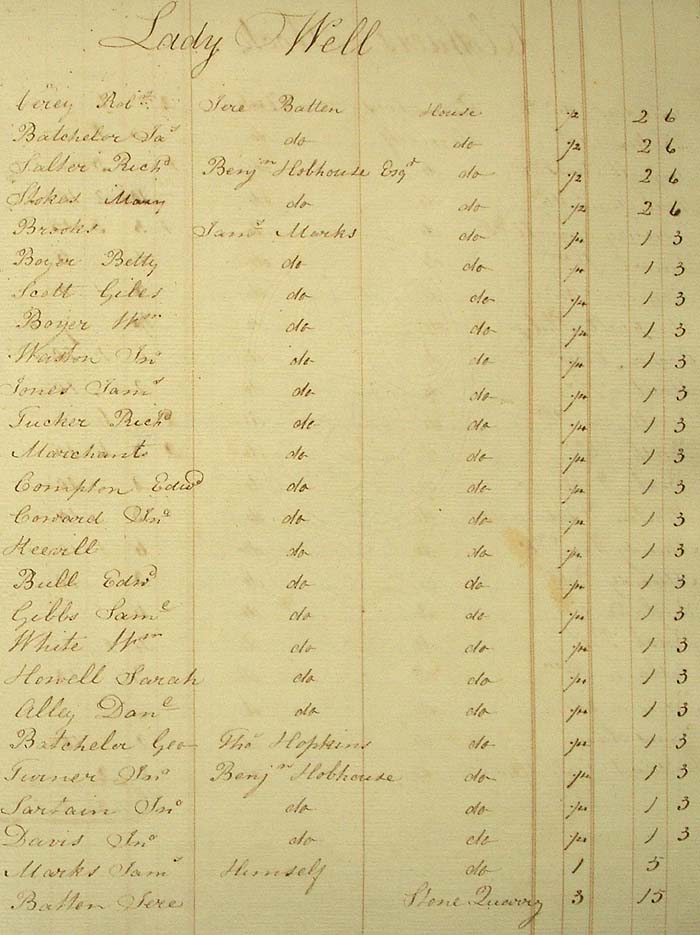 Lady Well
Verey Robt. Jere Batten House 1/2 2 6
Batchelor Jas do do 1/2 2 6
Salter Richd Benjn Hobhouse Esqr do 1/2 2 6
Stokes Mary do do 1/2 2 6
Brooks Jams Marks do 1/4 1 3
Boyer Betty do do 1/4 1 3
Scott Giles do do 1/4 1 3
Boyer Wm do do 1/4 1 3
Waston Jno do do 1/4 1 3
Jones Jams do do 1/4 1 3
Tucker Richd do do 1/4 1 3
Marchants do do 1/4 1 3
Compton Edwd do do 1/4 1 3
Coward Jno do do 1/4 1 3
Heevill do do 1/4 1 3
Bull Edwd do do 1/4 1 3
Gibbs Saml do do 1/4 1 3
White Wm do do 1/4 1 3
Howell Sarah do do 1/4 1 3
Alley Danl do do 1/4 1 3
Batchelor Geo Thos Hopkins do 1/4 1 3
Turner Jno Benjn Hobhouse do 1/4 1 3
Sartain Jno do do 1/4 1 3
Davis Jno do do 1/4 1 3
Marks Jams Himself do 1 5
Batten Jere Stone Quarry 3 15